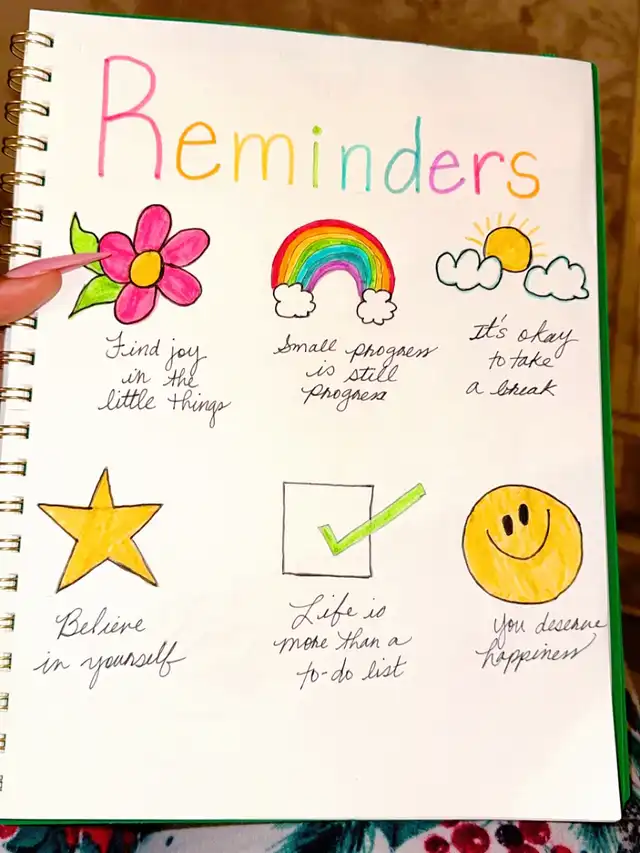 Reminders
Find joy
in the
little things
Small progress
is still
progress
It's okay
to take
a break
Believe
in yourself
Life is
more than a
to-do list
you deserve
happiness